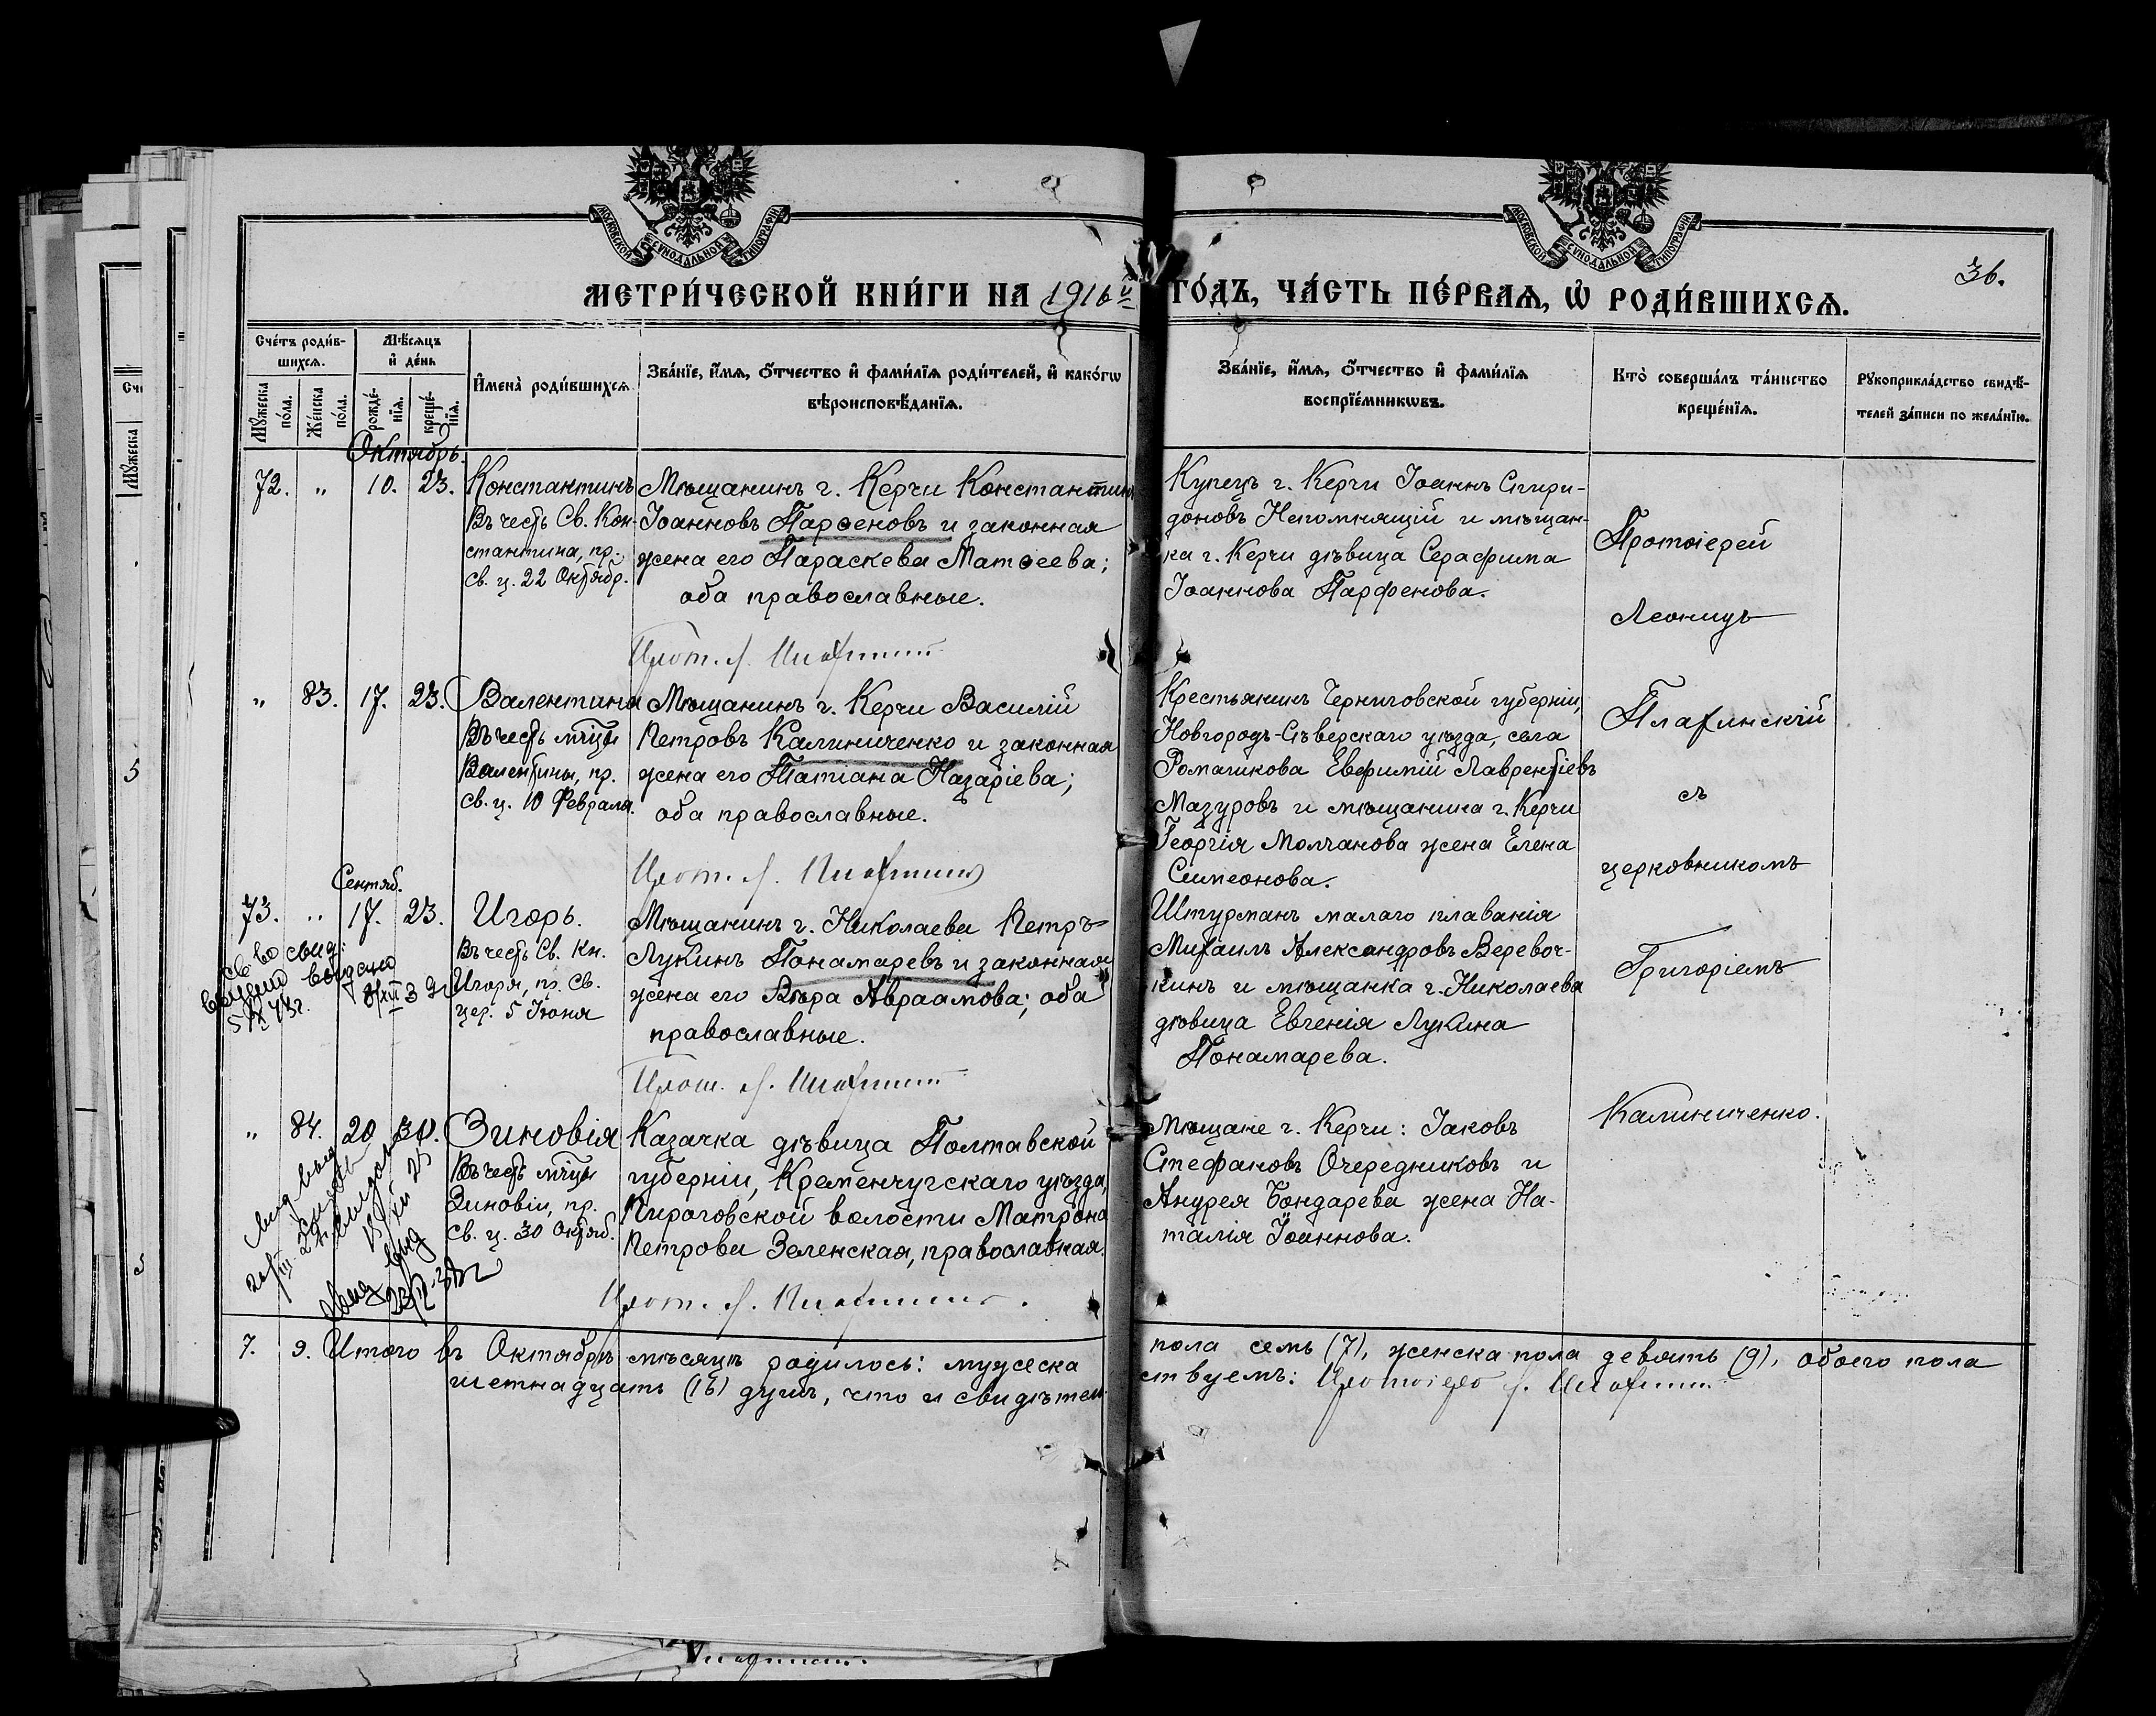 МОСКОВСКОЙ СѴНОДАЛЬНОЙ ТИПОГРАФІИ
МОСКОВСКОЙ СѴНОДАЛЬНОЙ ТИПОГРАФІИ
36.
МЕТРИ́ЧЕСКОЙ КНИ́ГИ НА 1916й ГО́ДЪ, ЧА́СТЬ ПЕ́РВАѦ, Ѡ РОДИ́ВШИХСѦ.
Сче́тъ роди́вшихсѧ.
Мꙋжеска по́ла.
Же́нска по́ла.
Мѣ́сѧцъ и де́нь
рожде́нїѧ.
креще́нїѧ.
И҆мена̀ роди́вшихсѧ
Зва́нїе, и҆́мѧ, ѻ҆́тчество и҆ фами́лїѧ роди́телей, и҆ како́гѡ
вѣроисповѣ́данїѧ.
Зва́нїе, и҆́мѧ, ѻ҆́тчество и҆ фами́лїѧ
воспрїе́мникѡвъ.
Кто̀ соверша́лъ та́инство
креще́нїѧ.
Рꙋкоприкла́дство свидѣ́-
телей за́писи по жела́нїю.
Октябрь.
72. „ 10. 23.
Константинъ
Въ честь Св. Кон-
стантина, пр.
св. ц. 22 Октябр.
Мѣщанинъ г. Керчи Константинъ
Іоанновъ Парѳеновъ и законная
жена его Параскева Матѳеева;
оба православные.
Прот. Л.
Купецъ г. Керчи Іоаннъ Спири-
доновъ Непомнящій и мѣщан-
ка г. Керчи дѣвица Серафима
Іоаннова Парфенова.
Протоіерей
Леонидъ
„ 83. 17. 23.
Валентина
Въ честь мч̃цы
Валентины, пр.
св. ц. 10 Февраля.
Мѣщанинъ г. Керчи Василій
Петровъ Калиниченко и законная
жена его Татіана Назаріева;
оба православные.
Прот. Л.
Крестьянинъ Черниговской губерніи,
Новгородъ-Сѣверскаго уѣзда, села
Ромашкова Евфимій Лаврентіевъ
Мазуровъ и мѣщанина г. Керчи
Георгія Молчанова жена Елена
Симеонова.
съ
церковникомъ
Сентяб.
73. „ 17. 23.
Игорь.
Въ честь Св. Кн.
Игоря, пр. Св.
цер. 5 Іюня
Мѣщанинъ г. Николаева Петръ
Лукинъ Понамаревъ и законная
жена его Вѣра Авраамова; оба
православные.
Прот. Л.
Штурманъ малаго плаванія
Михаилъ Александровъ Веревоч-
кинъ и мѣщанка г. Николаева
дѣвица Евгенія Лукина
Понамарева.
Григоріемъ
„ 84. 20 30.
Зиновія
Въ честь мч̃цы
Зиновіи, пр.
св. ц. 30 Октяб.
Казачка дѣвица Полтавской
губерніи, Кременчугскаго уѣзда,
Пироговской волости Матрона
Петрова Зеленская, православная.
Прот. Л.
Мѣщане г. Керчи: Іаковъ
Стефановъ Очередниковъ и
Андрея Бондарева жена На-
талія Іоаннова.
Калиниченко.
7. 9. Итого въ Октябрѣ мѣсяцѣ родилось: мужеска пола семь (7), женска пола девять (9), обоего пола
шетнадцать (16) душъ, что и свидѣтельствуемъ: Протоіерей Л.